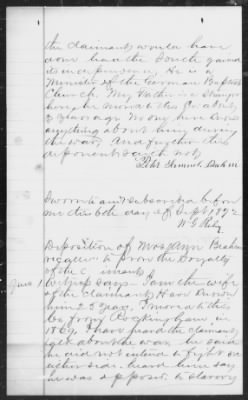 the claimant would have
done have the South gained
its independence. He is a
Minister of the German Baptist
Church. My Father is a stranger
here, he moved to this Co about
3 years ago. No one here knows
anything about him during
the war, And further this
deponent saith not.
Sworn to and subscribed before
me this 6th day of Sept 1872
W G Riley
Deposition of Mrs Ann
to prove the Loyalty
of the Claimant
Witness says I am the wife
of the Claimant. Have known
him 25 years. I moved to this
Co from Rockingham in
1869. I have heard the claimant
talk about the war. he said
he did not intend to fight on
either side. heard him say
he was opposed to slavery